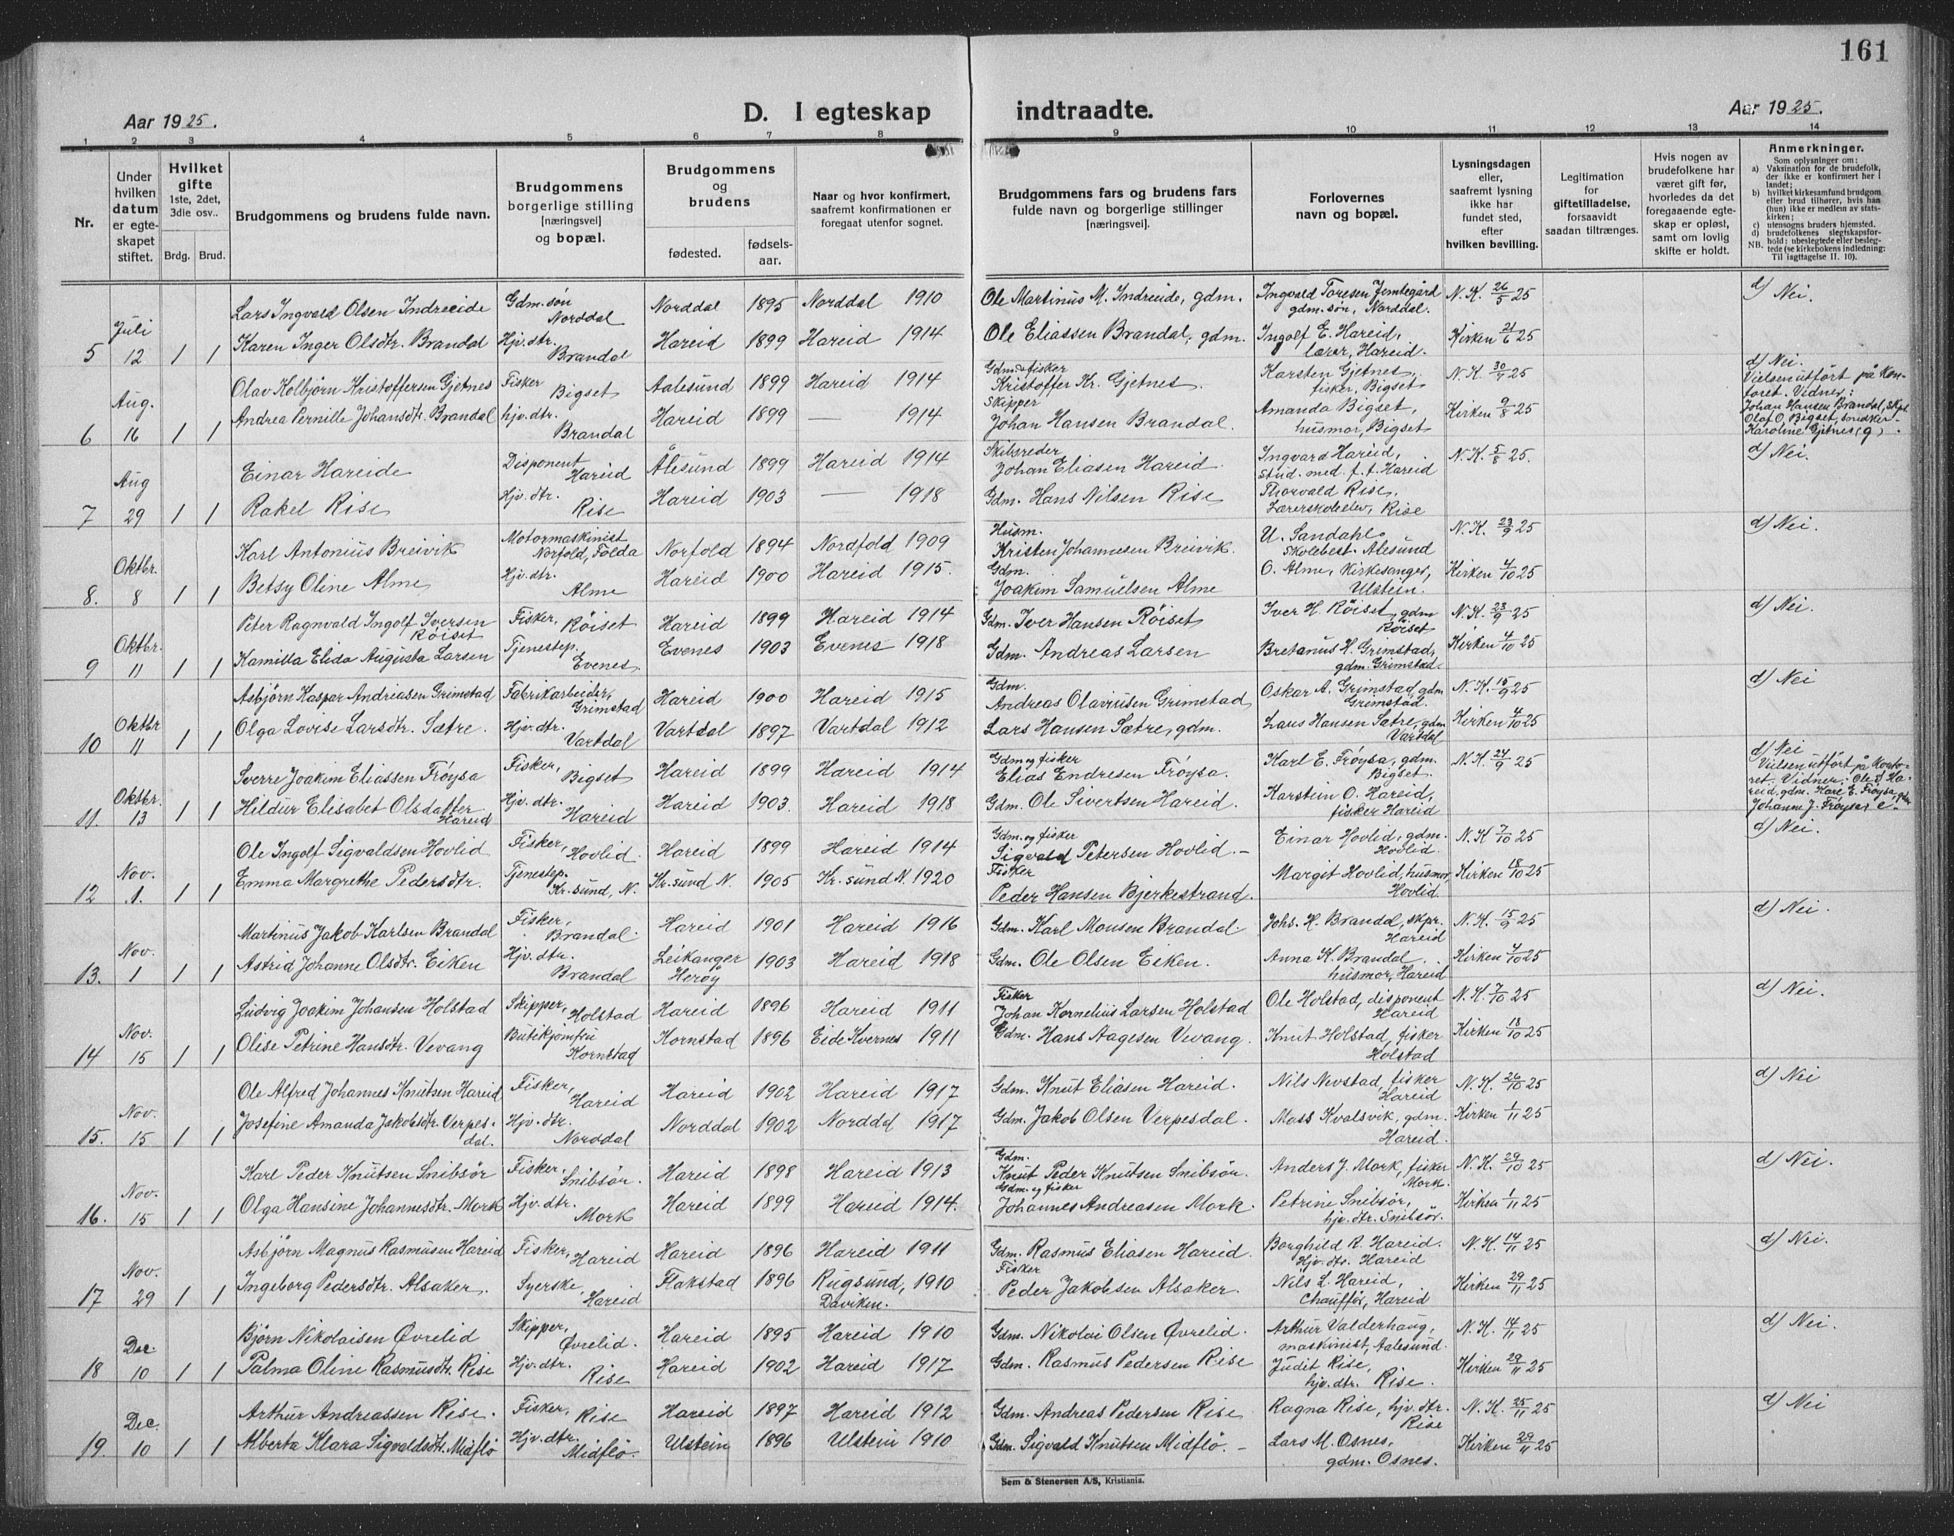 161
Aar 1925.
D. I egteskap indtraadte.
Aar 1925.
1 2 3 4 5 6 7 8 9 10 11 12 13 14
Nr.
Under hvilken datum er egteskapet stiftet.
Hvilket gifte 1ste, 2det, 3die osv..
Brdg. Brud.
Brudgommens og brudens fulde navn.
Brudgommens borgerlige stilling [næringsvei] og bopæl.
Brudgommens og brudens
fødested.
fødselsaar.
Naar og hvor konfirmert, saafremt konfirmationen er foregaat utenfor sognet.
Brudgommens fars og brudens fars fulde navn og borgerlige stillinger [næringsvei]
Forlovernes navn og bopæl.
Lysningsdagen eller, saafremt lysning ikke har fundet sted, efter hvilken bevilling.
Legitimation for giftetilladelse, forsaavidt saadan tiltrænges.
Hvis nogen av brudefolkene har været gift før, hvorledes da det foregaaende egteskap er opløst, samt om lovlig skifte er holdt.
Anmerkninger.
Som oplysninger om:
a) Vaksination for de brudefolk, der ikke er konfirmert her i landet;
b) hvilket kirkesamfund brudgom eller brud tilhører, hvis han (hun) ikke er medlem av statskirken;
c) utensogns bruders hjemsted.
d) brudefolkenes slegtskapsforhold: ubeslegtede eller beslegtede (se kirkebokens indledning: NB. Til iagttagelse II. 10).
Lars Ingvald Olsen Indreeide Gdm. søn Norddal Norddal 1895 Norddal 1910 Ole Martinus M. Indreeide, gdm. Ingvald Toresen Jemtegård gdm. søn, Norddal. N.K. 26/5 25 d) Nei.
5 Juli 12 1 1 Karen Inger Olsdtr. Brandal Hjv. dtr. Brandal Hareid 1899 Hareid 1914 Ole Eliassen Brandal, gdm. Ingolf E. Hareid, lærer, Hareid. Kirken 21/6 25
Olav Kolbjørn Kristoffersen Gjetnes Fisker Bigset Aalesund 1899 Hareid 1914 Gdm & fisker Kristoffer Kr. Gjetnes. Karsten Gjetnes, fisker, Bigset N.K. 25 d) Nei. Vielsen utført på kontoret. Vidner: Johan Hansen Brandal, skpr. Olaf O. Bigset, snidker Karoline Gjetnes (g).
6 Aug. 16 1 1 Andrea Pernille Johansdtr. Brandal hjv. dtr. Brandal Hareid 1899 — 1914 Skipper Johan Hansen Brandal. Amanda Bigset, husmor, Bigset Kirken 9/8 25
Einar Hareide Disponent Hareid Ålesund 1899 Hareid 1914 Skibsreder Johan Eliasen Hareid. Ingvard Hareid, Stud. med. f.t. Hareid N.K. 5/8 25. d) Nei.
7 Aug 29 1 1 Rakel Rise Hjv. dtr. Rise Hareid 1903 — 1918 Gdm. Hans Nilsen Rise Thorvald Rise, Lærerskoleelev, Rise
Karl Antonius Breivik Motormaskinist Norfold, Folda Norfold 1894 Nordfold 1909 Husm. Kristen Johannesen Breivik. U. Sandahl, Skolebest. Alesund N.K. 23/9 25 d) Nei.
8. Oktbr. 8 1 1 Betsy Oline Alme Hjv. dtr. Alme Hareid 1900 Hareid 1915. Gdm. Joakim Samuelsen Alme O. Alme, kirkesanger, Ulstein. Kirken 4/10 25
Peter Ragnvald Ingolf Iversen Røiset Fisker, Røiset Hareid 1899 Hareid 1914 Gdm. Iver Hansen Røiset Iver H. Røiset, gdm Røiset N.K. 23/9 25 d) Nei.
9 Oktbr. 11 1 1 Kamilla Elida Augusta Larsen Tjenestep. Evenes Evenes 1903 Evenes 1918 Gdm. Andreas Larsen Bretanus H. Grimstad, gdm. Grimstad. Kirken 4/10 25
Asbjørn Kaspar Andreasen Grimstad Fabrikarbeider, Grimstad Hareid 1900 Hareid 1915 Gdm. Andreas Olaviusen Grimstad Oskar A. Grimstad, gdm Grimstad. N.K. 15/9 25 d) Nei
10 Oktbr 11 1 1 Olga Lovise Larsdtr. Sætre. Hjv. dtr. Vartdal Vartdal 1897 Vartdal 1912 Lars Hansen Sætre, gdm. Laus Hansen Sætre, gdm Vartdal Kirken 4/10 25
Sverre Joakim Eliassen Frøysa Fisker, Bigset Hareid 1899 Hareid 1914 Gdm og fisker Elias Endresen Frøysa. Karl E. Frøysa, gdm. Bigset N.K. 24/9 25 d) Nei Vielsen utført på kontoret. Vidner: Ole S. Hareid, gdm. Kare E. Frøysa, gdm Johanne J. Frøysa, e.
11. Oktbr. 13 1 1 Hildur Elisabet Olsdatter Hareid Hjv. dtr. Hareid Hareid 1903. Hareid 1918 Gdm. Ole Sivertsen Hareid. Karstein O. Hareid, fisker Hareid
Ole Ingolf Sigvaldsen Hovlid Fisker, Hovlid. Hareid 1899 Hareid 1914 Gdm. og fisker Sigvald Petersen Hovlid. — Einar Hovlid, gdm. Hovlid. N.K. 7/10 25 d) Nei.
12 Nov. 1. 1 1 Emma Margrethe Pedersdtr. Tjenestep. Kr. sund, N. Kr. sund N. 1905 Kr. sund N. 1920 Fisker Peder Hansen Bjerkestrand. Margit Hovlid, husmor, Hovlid Kirken 18/10 25
Martinus Jakob Karlsen Brandal Fisker, Brandal. Hareid 1901 Hareid 1916 Gdm. Karl Monsen Brandal Johs. H. Brandal, skpr. Hareid N.K. 15/9 25 d) Nei.
13. Nov. 1 1 1 Astrid Johanne Olsdtr. Eiken Hjv. dtr. Brandal Leikanger Herøy 1903 Hareid 1918 Gdm. Ole Olsen Eiken. Anna K. Brandal. husmor, Hareid Kirken 4/10 25
Ludvig Joakim Johansen Holstad Skipper, Holstad Hareid 1896 Hareid 1911 Fisker Johan Kornelius Larsen Holstad Ole Holstad, disponent Hareid N.K. 7/10 25 d) Nei.
14 Nov. 15 1 1 Olise Petrine Hansdtr. Vevang Butikjomfru Kornstad Kornstad 1896 Eide Kvernes 1911 Gdm. Hans Aagesen Vevang. Knut Holstad, fisker Holstad Kirken 18/10 25
Ole Alfred Johannes Knutsen Hareid Fisker, Hareid Hareid 1902 Hareid 1917 Gdm. Knut Eliasen Hareid. Nils Nevstad, fisker Hareid N.K. 26/10 25 d) Nei
15. Nov. 15 1 1 Josefine Amanda Jakobsdtr. Verpesdal. Hjv. dtr. Norddal Norddal 1902 Norddal 1917 Gdm. Jakob Olsen Verpesdal. Mass Kvalsvik, gdm. Hareid. Kirken 1/11 25
Karl Peder Knutsen Snibsør Fisker, Snibsør. Hareid 1898 Hareid 1913 Gdm. Knut Peder Knutsen Snibsør. Anders J. Mork, fisker Mork. N.K. 29/10 25 d) Nei.
16. Nov. 15 1 1 Olga Hansine Johannesdtr. Mork Hjv. dtr. Mork Hareid 1899 Hareid 1914. Gdm. og fisker Johannes Andreasen Mork. Petrine Snibsør, hjv. dtr. Snibsør. Kirken 1/11 25
Asbjørn Magnus Rasmusen Hareid Fisker, Hareid Hareid 1896 Hareid 1911 Gdm. Rasmus Eliasen Hareid. Borghild R. Hareid. Hjv. dtr. Hareid N.K. 14/11 25 d) Nei.
17 Nov. 29 1 1 Ingeborg Pedersdtr. Alsaker. Syerske, Hareid Flakstad 1896 Rugsund, Daviken. 1910 Fisker Peder Jakobsen Alsaker. Nils L. Hareid, Chauffør, Hareid Kirken 29/11 25
Bjørn Nikolaisen Øvrelid Skipper, Øvrelid. Hareid 1895 Hareid 1910 Gdm. Nikolai Olsen Øvrelid. Arthur Valderhaug, maskinist, Aalesund. N.K. 14/11 25 d) Nei.
18 Dec. 10 1 1 Palma Oline Rasmusdtr. Rise Hjv. dtr. Rise Hareid 1902 Hareid 1917 Gdm. Rasmus Pedersen Rise Judit Rise, hjv. dtr. Rise. Kirken 29/11 25
Arthur Andreassen Rise. Fisker, Rise Hareid 1897 Hareid 1912 Gdm. Andreas Pedersen Rise Ragna Rise, hjv. dtr. Rise N.K. 25/11 25 d) Nei
19. Dec. 10 1 1 Alberta Klara Sigvaldsdtr. Midflø Hjv. dtr. Midflø. Ulstein 1896 Ulstein 1910 Gdm. Sigvald Knutsen Midflø. — Lars M. Osnes, gdm. Osnes. Kirken 29/11 25
Sem & Stenersen A/S, Kristiania.